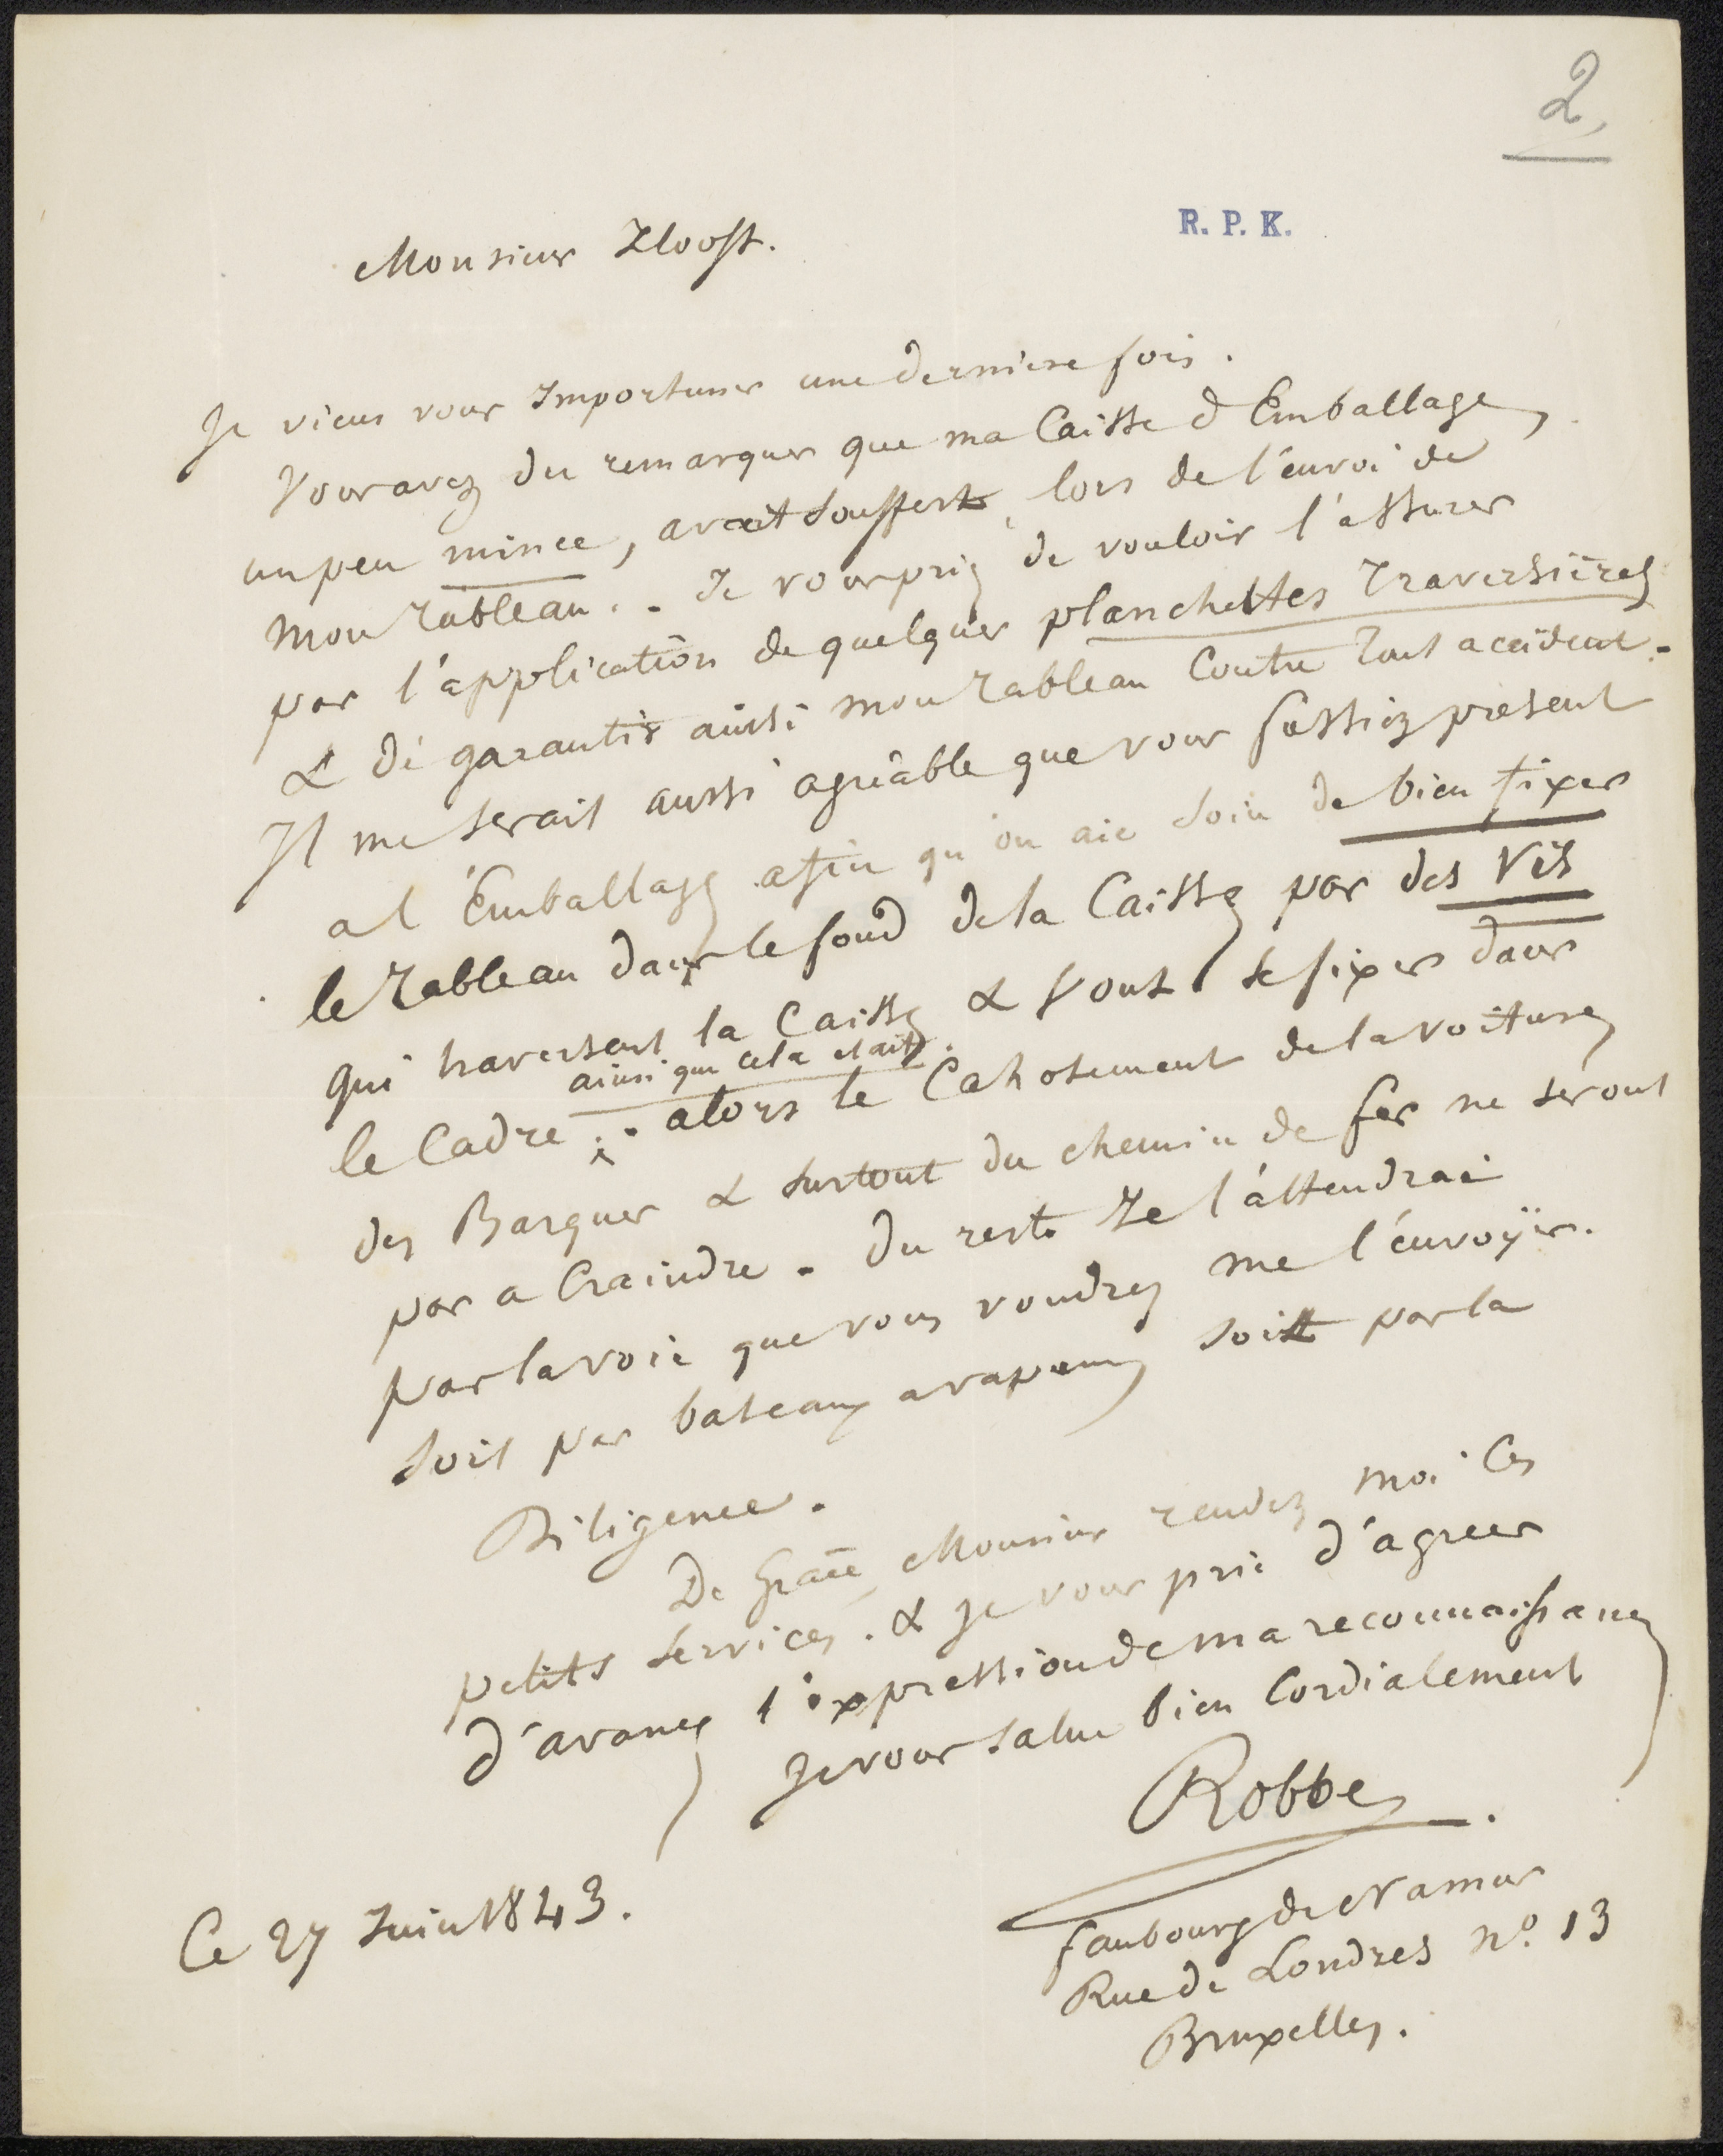 2
R. P. K.
Monsieur Zloost.
Je viens vous Importuner une derniere fois.
Vous avez du remarquer que ma Caisse d Emballage,
un peu mince, avait souffert, lors de l'envoi de
mon Tableau. - Je vous prie de vouloir l'assurer
par l'application de quelques planchettes Traversières
& de garantir ainsi mon Tableau Contre tout accident. -
Il me serait aussi agréable que vous fassiez présent
a l'Emballage afin qu'on aie soin de bien fixer
le Tableau dans le fond de la Caisse par des Vis
qui traversent la Caisse & vont se fixer dans
ainsi que cela etait.
le Cadre. - alors le Cahotement de la voiture
des Barques & surtout du chemin de fer ne seront
pas a Craindre. Du reste Je l'attendrai
par la voie que vous voudrez me l'envoÿer.
Soit par bateaux a vapeur, soit par la
Diligence.
De Grace Monsieur rendez moi Ces
petits services. & Je vous prie d'agreer
d'avance l'expression de ma reconnaissance
Je vous salue bien Cordialement
Robbe.
Ce 27 Juin 1843.
faubourg de Namur
Rue de Londres no. 13
Bruxelles.